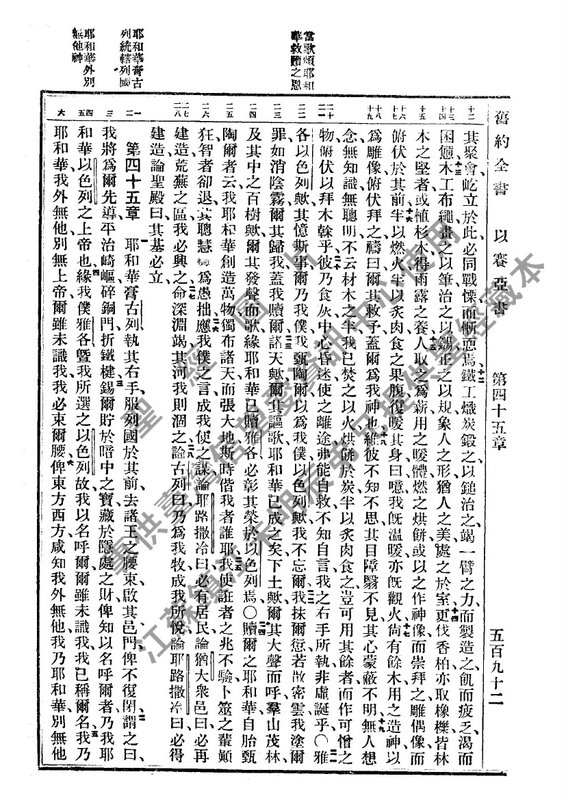 舊約全書　以賽亞書　第四十五章　五百九十二
當歌頌耶和
華救贖之恩
耶和華膏古
列統轄列國
耶和華外別
無他神
其聚會屹立於此必同戰慄而慚恧焉鐵工熾炭鍛之以鎚治之竭一臂之力而製造之飢而疲乏渴而
困憊木工布繩畫之以筆治之以鑢正之以規象人之形猶人之美處之於室更伐香柏亦取橡櫟皆林
本之堅者或植杉木得雨露之養人取之爲薪用之暖體燃之烘餅或以之作神像而崇拜之雕偶像而
俯伏於其前半以燃火半以炙肉食之果腹復暖其身曰噫我旣溫暖亦旣觀火尙有餘木用之造神以
爲雕像俯伏拜之禱曰爾其救予蓋爾爲我神也維彼不知不思其目障翳不見其心蒙蔽不明無人想
念無知識無聰明不云材木之半我已焚之以火烘餅於炭半以炙肉食之豈可用其餘者而作可憎之
物俯伏以拜木榦乎彼乃食灰中心昏迷使之離途弗能自救不知自言我之右手所執非虛誕乎〇雅
各以色列歟其憶斯事爾乃我僕我甄陶爾以爲我僕以色列歟我不忘爾我抹爾愆若散密雲我塗爾
罪如消陰霧爾其歸我蓋我贖爾諸天歟爾其謳歌耶和華已成之矣下土歟爾其大聲而呼羣山茂林
及其中之百樹歟爾其發聲而歌緣耶和華已贖雅各必彰其榮於以色列焉〇贖爾之耶和華自胎甄
陶爾者云我耶和華創造萬物獨布諸天而張大地斯時偕我者誰耶我使誑者之兆不驗卜筮之輩顚
狂智者卻退其聰慧變爲愚拙應我僕之言成我使之謀論耶路撒冷曰必有居民論猶大衆邑曰必再
建造荒蕪之區我必興之命深淵竭其河我則涸之論古列曰乃爲我牧成我所悅論耶路撒冷曰必得
建造論聖殿曰其基必立
第四十五章　耶和華膏古列執其右手服列國於其前去諸王之腰束啟其邑門俾不復閉謂之曰
我將爲爾先導平治崎嶇碎銅門折鐵楗錫爾貯於暗中之寶藏於隱處之財俾知以名呼爾者乃我耶
和華以色列之上帝也緣我僕雅各曁我所選之以色列故我以名呼爾爾雖未識我我已稱爾名我乃
耶和華我外無他別無上帝爾雖未識我我必束爾腰俾東方西方咸知我外無他我乃耶和華別無他